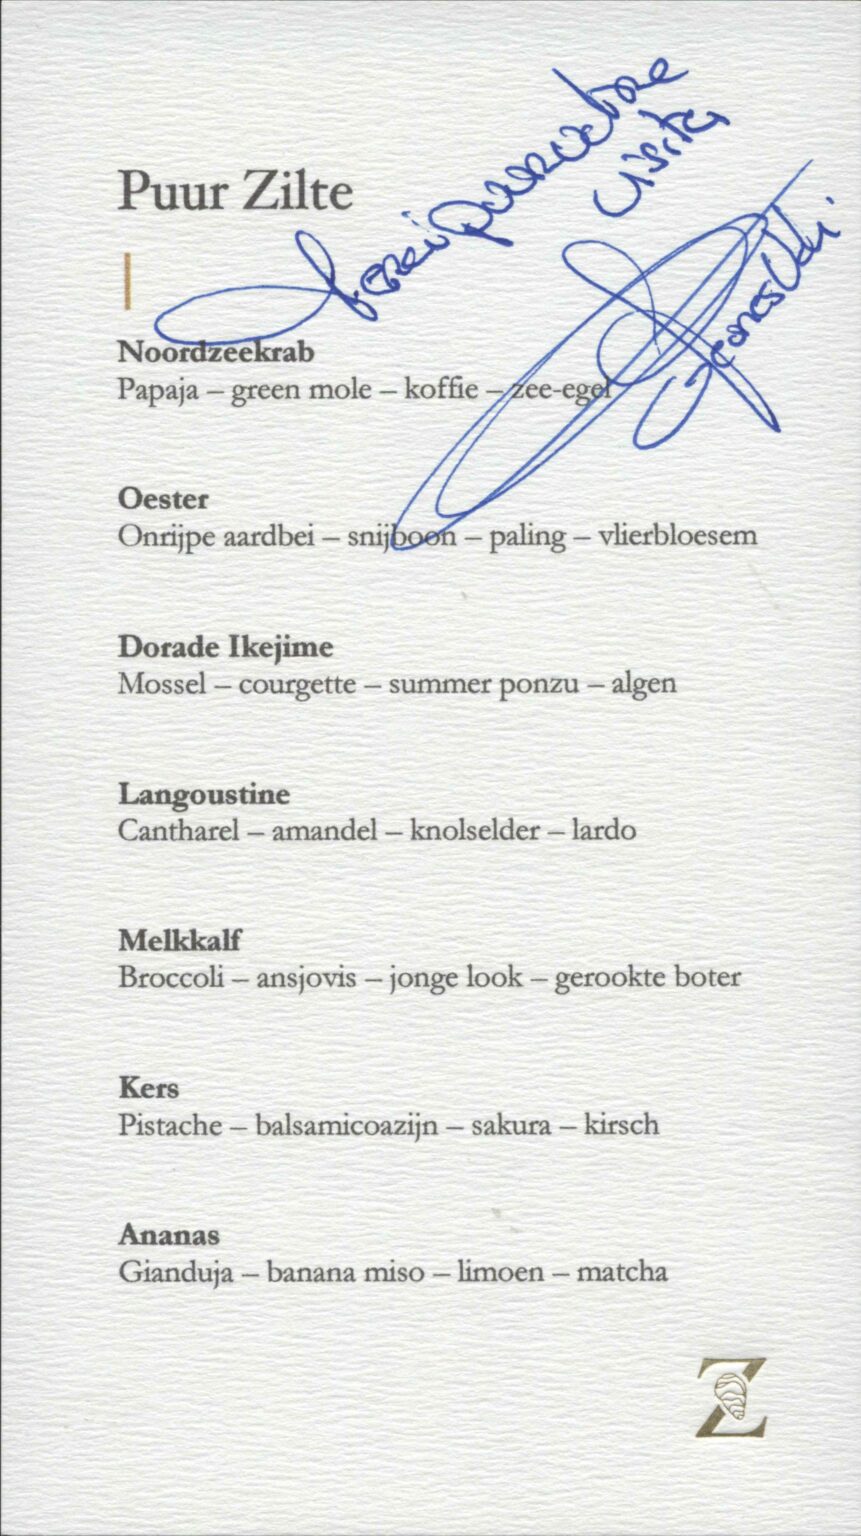 Merci pour votre
visite
Puur Zilte
Noordzeekrab
Papaja – green mole – koffie – zee-egel
Oester
Onrijpe aardbei – snijboon – paling – vlierbloesem
Dorade Ikejime
Mossel – courgette – summer ponzu – algen
Langoustine
Cantharel – amandel – knolselder – lardo
Melkkalf
Broccoli – ansjovis – jonge look – gerookte boter
Kers
Pistache – balsamicoazijn – sakura – kirsch
Ananas
Gianduja – banana miso – limoen – matcha
Z